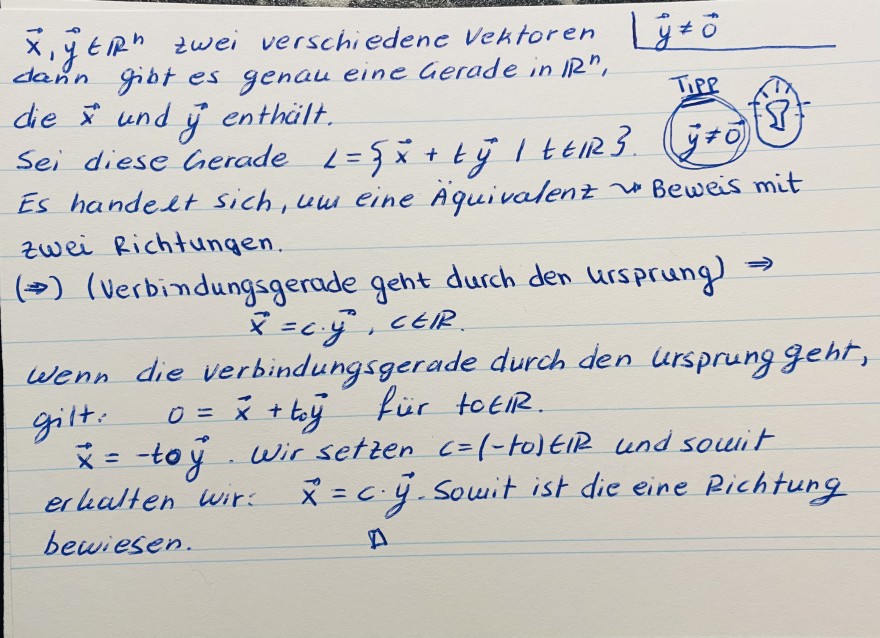 x⃗, y⃗ ∈ ℝⁿ zwei verschiedene Vektoren | y⃗ ≠ 0⃗
dann gibt es genau eine Gerade in ℝⁿ,
die x⃗ und y⃗ enthält.
TIPP
y⃗ ≠ 0⃗
Sei diese Gerade L = { x⃗ + t y⃗ | t ∈ ℝ }.
Es handelt sich, um eine Äquivalenz ↝ Beweis mit
zwei Richtungen.
(⇒) (Verbindungsgerade geht durch den Ursprung) ⇒
x⃗ = c · y⃗, c ∈ ℝ.
Wenn die Verbindungsgerade durch den Ursprung geht,
gilt: 0 = x⃗ + t₀y⃗ für t0 ∈ ℝ.
x⃗ = -t0 y⃗. Wir setzen c = (-t0) ∈ ℝ und somit
erhalten wir: x⃗ = c · y⃗. Somit ist die eine Richtung
bewiesen. □